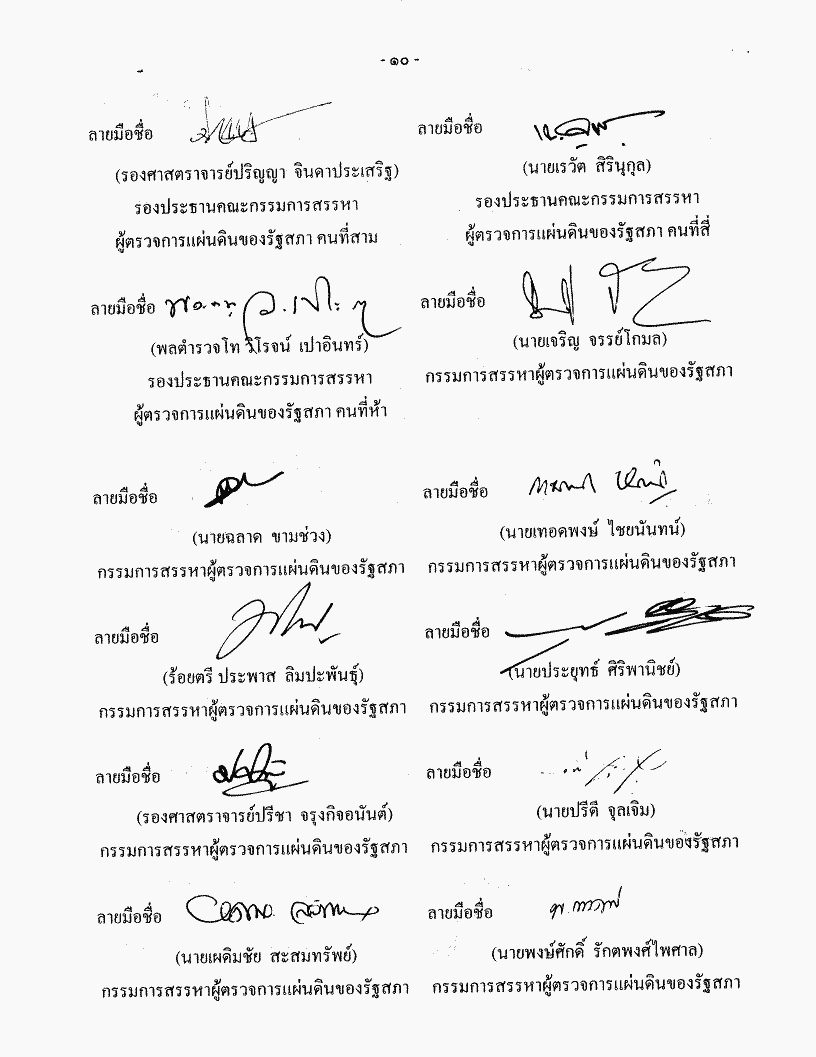 - ๑๐ -
ลายมือชื่อ
(รองศาสตราจารย์ปริญญา จินดาประเสริฐ)
รองประธานคณะกรรมการสรรหา
ผู้ตรวจการแผ่นดินของรัฐสภา คนที่สาม
ลายมือชื่อ
(นายเรวัต สิรินุกุล)
รองประธานคณะกรรมการสรรหา
ผู้ตรวจการแผ่นดินของรัฐสภา คนที่สี่
ลายมือชื่อ
(พลตำรวจโท วิโรจน์ เปาอินทร์)
รองประธานคณะกรรมการสรรหา
ผู้ตรวจการแผ่นดินของรัฐสภา คนที่ห้า
ลายมือชื่อ
(นายเจริญ จรรย์โกมล)
กรรมการสรรหาผู้ตรวจการแผ่นดินของรัฐสภา
ลายมือชื่อ
(นายฉลาด ขามช่วง)
กรรมการสรรหาผู้ตรวจการแผ่นดินของรัฐสภา
ลายมือชื่อ
(นายเทอดพงษ์ ไชยนันทน์)
กรรมการสรรหาผู้ตรวจการแผ่นดินของรัฐสภา
ลายมือชื่อ
(ร้อยตรี ประพาส ลิมปะพันธุ์)
กรรมการสรรหาผู้ตรวจการแผ่นดินของรัฐสภา
ลายมือชื่อ
(นายประยุทธ์ ศิริพานิชย์)
กรรมการสรรหาผู้ตรวจการแผ่นดินของรัฐสภา
ลายมือชื่อ
(รองศาสตราจารย์ปรีชา จรุงกิจอนันต์)
กรรมการสรรหาผู้ตรวจการแผ่นดินของรัฐสภา
ลายมือชื่อ
(นายปรีดี จุลเจิม)
กรรมการสรรหาผู้ตรวจการแผ่นดินของรัฐสภา
ลายมือชื่อ
(นายเผดิมชัย สะสมทรัพย์)
กรรมการสรรหาผู้ตรวจการแผ่นดินของรัฐสภา
ลายมือชื่อ
(นายพงษ์ศักดิ์ รักตพงศ์ไพศาล)
กรรมการสรรหาผู้ตรวจการแผ่นดินของรัฐสภา